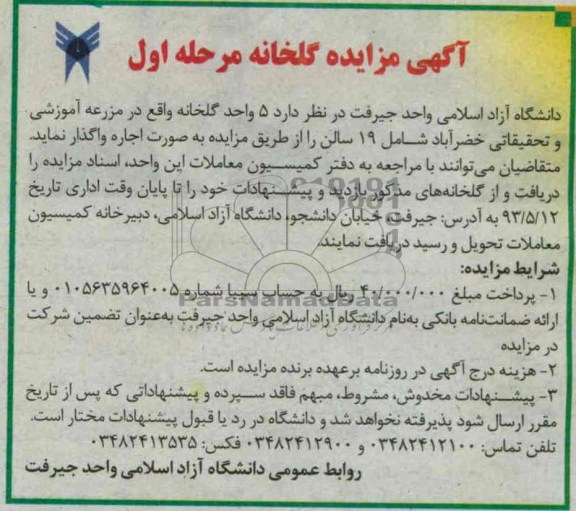 آگهی مزایده گلخانه مرحله اول
دانشگاه آزاد اسلامی واحد جیرفت در نظر دارد ۵ واحد گلخانه واقع در مزرعه آموزشی
و تحقیقاتی خضرآباد شامل ۱۹ سالن را از طریق مزایده به صورت اجاره واگذار نماید.
متقاضیان می‌توانند با مراجعه به دفتر کمیسیون معاملات این واحد، اسناد مزایده را
دریافت و از گلخانه‌های مذکور بازدید و پیشنهادات خود را تا پایان وقت اداری تاریخ
۹۳/۵/۱۲ به آدرس: جیرفت، خیابان دانشجو، دانشگاه آزاد اسلامی، دبیرخانه کمیسیون
معاملات تحویل و رسید دریافت نمایند.
شرایط مزایده:
۱- پرداخت مبلغ ۴۰/۰۰۰/۰۰۰ ریال به حساب سیبا شماره ۰۱۰۵۶۳۵۹۶۴۰۰۵ و یا
ParsNamadData
ارائه ضمانت‌نامه بانکی به‌نام دانشگاه آزاد اسلامی واحد جیرفت به‌عنوان تضمین شرکت
در مزایده
۲- هزینه درج آگهی در روزنامه برعهده برنده مزایده است.
۳- پیشنهادات مخدوش، مشروط، مبهم فاقد سپرده و پیشنهاداتی که پس از تاریخ
مقرر ارسال شود پذیرفته نخواهد شد و دانشگاه در رد یا قبول پیشنهادات مختار است.
تلفن تماس: ۰۳۴۸۲۴۱۲۱۰۰ و ۰۳۴۸۲۴۱۲۹۰۰ فکس: ۰۳۴۸۲۴۱۳۵۳۵
روابط عمومی دانشگاه آزاد اسلامی واحد جیرفت